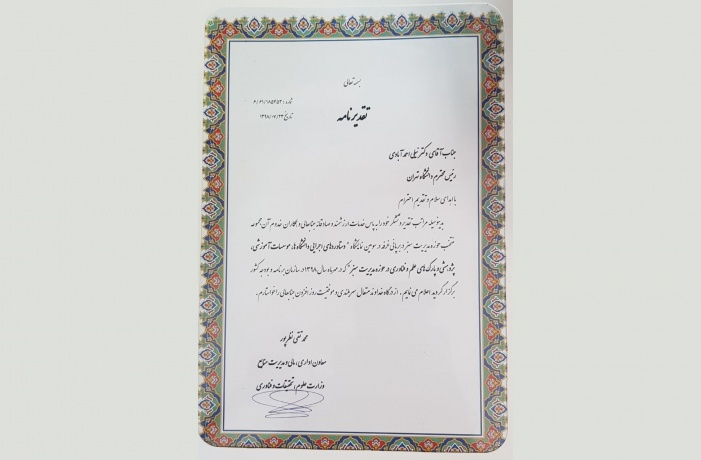 بسمه تعالی
شماره : ۶/۶۱/۱۸۵۴۵۲
تاریخ: ۱۳۹۸/۰۷/۲۳
تقدیرنامه
جناب آقای دکتر نیلی احمدآبادی
رئیس محترم دانشگاه تهران
با اهدای سلام و تقدیم احترام
بدینوسیله مراتب تقدیر و تشکر خود را به پاس خدمات ارزشمند و صادقانه جنابعالی و همکاران خدوم آن مجموعه
منتخب حوزه مدیریت سبز در برپایی غرفه در سومین نمایشگاه " دستاوردهای اجرایی دانشگاه ها، موسسات آموزشی،
پژوهشی و پارک های علم و فناوری در حوزه مدیریت سبز" که در مهرماه سال ۱۳۹۸ در سازمان برنامه و بودجه کشور
برگزار گردید اعلام می نمایم. از درگاه خداوند متعال سربلندی و موفقیت روز افزون جنابعالی را خواستارم.
محمد تقی نظرپور
معاون اداری، مالی و مدیریت منابع
وزارت علوم، تحقیقات و فناوری